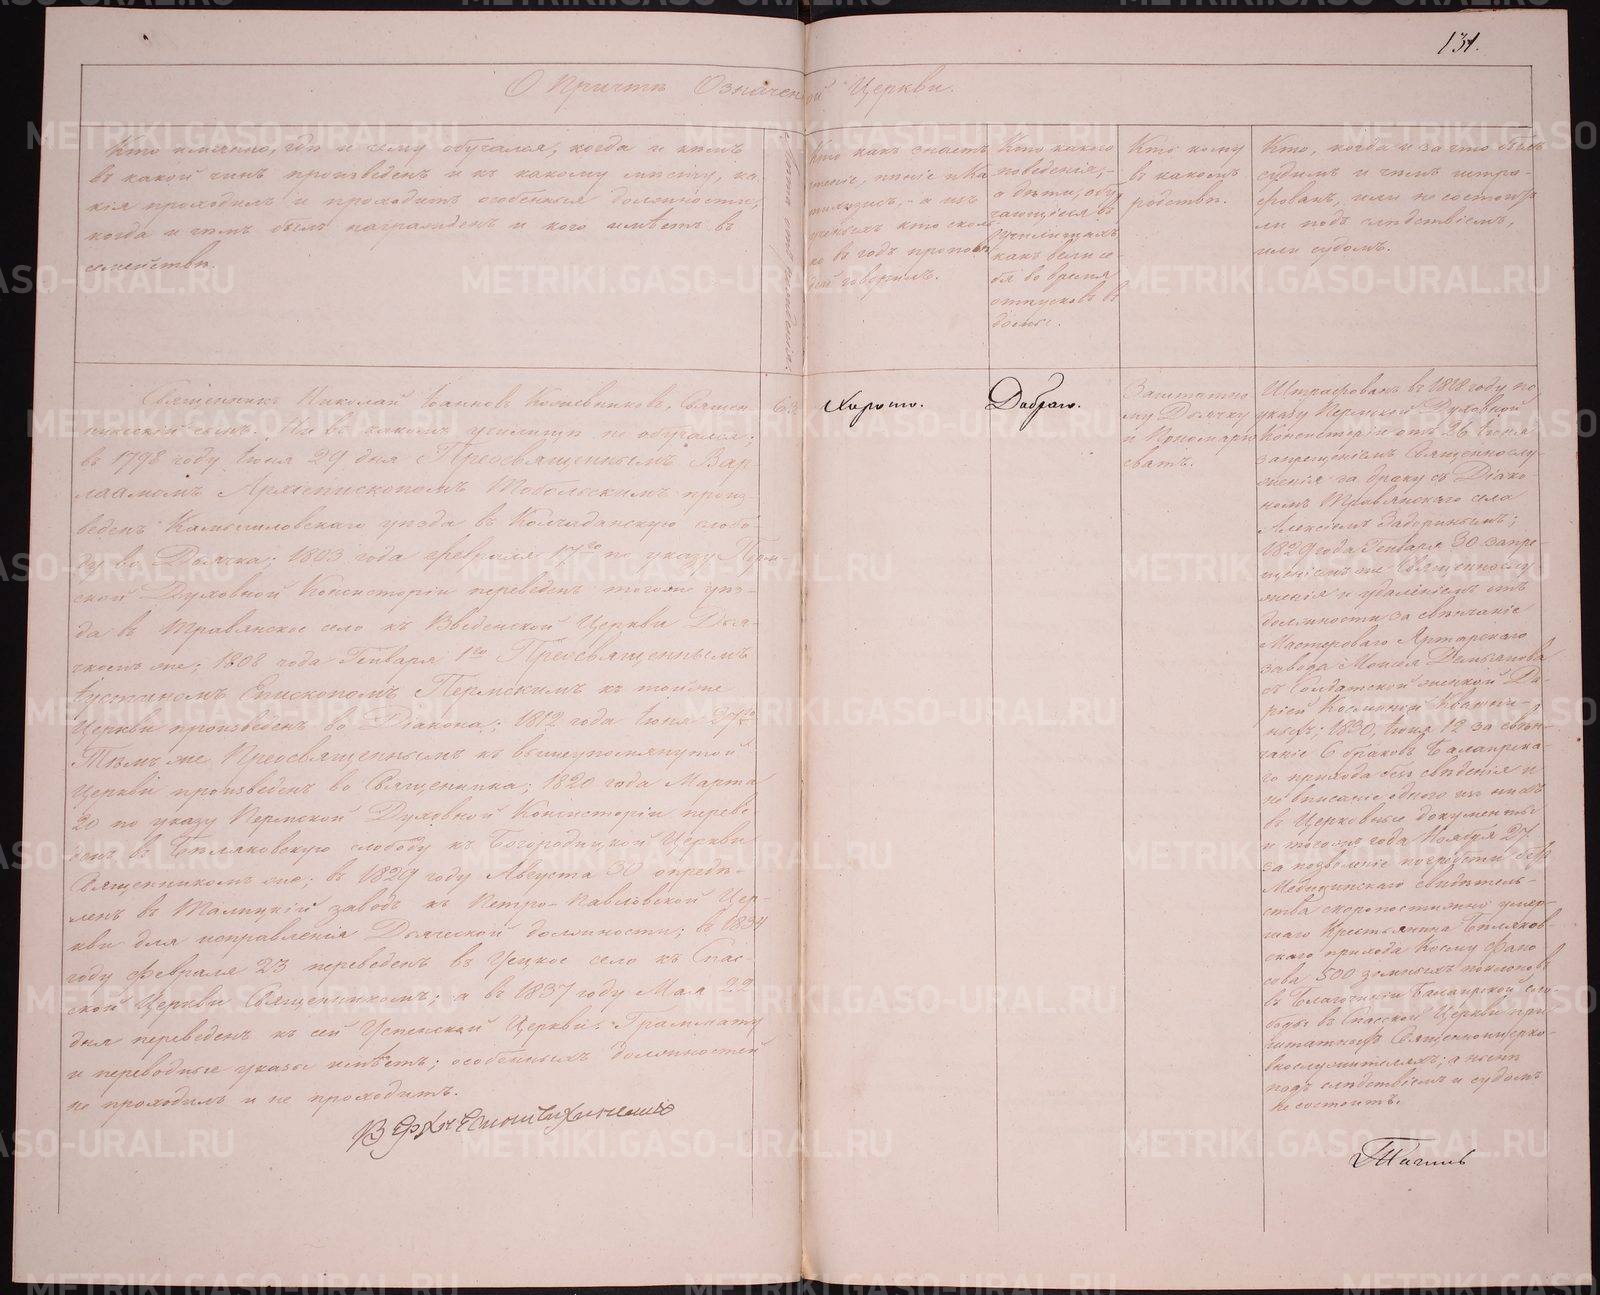 131.
О Причтѣ Означенной Церкви.
Кто именно, гдѣ и чему обучался, когда и кѣмъ
въ какой чинъ произведенъ и къ какому мѣсту, ка-
кія проходилъ и проходитъ особенныя должности,
когда и чѣмъ былъ награжденъ и кого имѣетъ въ
семействѣ.
Кто какъ знаетъ
чтеніе, пѣніе и Ка-
тихизисъ, а изъ
ученыхъ кто сколь-
ко въ годъ проповѣ-
дей говорилъ.
Кто какого
поведенія,
а дѣти, обу-
чающіяся въ
училищахъ
какъ вели се-
бя во время
отпусковъ въ
домы.
Кто кому
въ какомъ
родствѣ.
Кто, когда и за что былъ
судимъ и чѣмъ штра-
фованъ, или не состоитъ
ли подъ слѣдствіемъ,
или судомъ.
Священникъ Николай Іоанновъ Кожевниковъ, Священ-
ническій сынъ. Ни въ какомъ училищѣ не обучался;
въ 1798 году Іюня 29 дня Преосвященнымъ Вар-
лаамомъ Архіепископомъ Тобольскимъ произ-
веденъ Камышловскаго уѣзда въ Колчаданскую слобо-
ду во Дьячка; 1803 года Февраля 17го по указу Перм-
ской Духовной Консисторіи переведенъ тогожъ уѣз-
да въ Травянское село къ Введенской Церкви Дья-
чкомъ же; 1808 года Генваря 1го Преосвященнымъ
Іустиномъ Епископомъ Пермскимъ къ тойже
Церкви произведенъ во Діакона; 1812 года Іюня 27го
Тѣмъ же Преосвященнымъ къ вышеупомянутой
Церкви произведенъ во Священника; 1820 года Марта
20 по указу Пермской Духовной Консисторіи переве-
денъ въ Бѣляковскую слободу къ Богородицкой Церкви
Священникомъ же; въ 1829 году Августа 30 опредѣ-
ленъ въ Талицкій заводъ къ Петро-Павловской Цер-
кви для исправленія Дьяческой должности; въ 1834
году Февраля 23 переведенъ въ Уецкое село къ Спас-
ской Церкви Священникомъ; а въ 1837 году Мая 22
дня переведенъ къ сей Успенской Церкви. Граммату
и переводные указы имѣетъ; особенныхъ должностей
не проходилъ и не проходитъ.
Хорошо.
Добраго.
Заштатно-
му Дьячку
и Пономарю
сватъ.
Штрафованъ въ 1818 году по
указу Пермской Духовной
Консисторіи отъ 26 Іюня
запрещеніемъ Священнослу-
женія за драку съ Діако-
номъ Травянскаго села
Алексіемъ Задоринымъ;
1829 года Генваря 30 запре-
щеніемъ же Священнослу-
женія и удаленіемъ отъ
должности за свѣнчаніе
Мастероваго
завода Моисея
съ Солдатской женкой Да-
ріей Косьминой
1830, Іюня 12 за свѣн-
чаніе 6 браковъ Балаирска-
го прихода безъ свѣденія и
не вписаніе одного изъ нихъ
въ Церковные документы
и тогожъ года Ноября 27
за позволеніе погрѣбсти безъ
Медицинскаго свидѣтель-
ства скоропостижно умер-
шаго Крестьянина Бѣляков-
скаго прихода Косму
500 земныхъ поклоновъ
въ Благочиніи Балаирской сло-
боды въ Спасской Церкви при
штатныхъ Священноцерко-
внослужителяхъ; а нынѣ
подъ слѣдствіемъ и судомъ
не состоитъ.